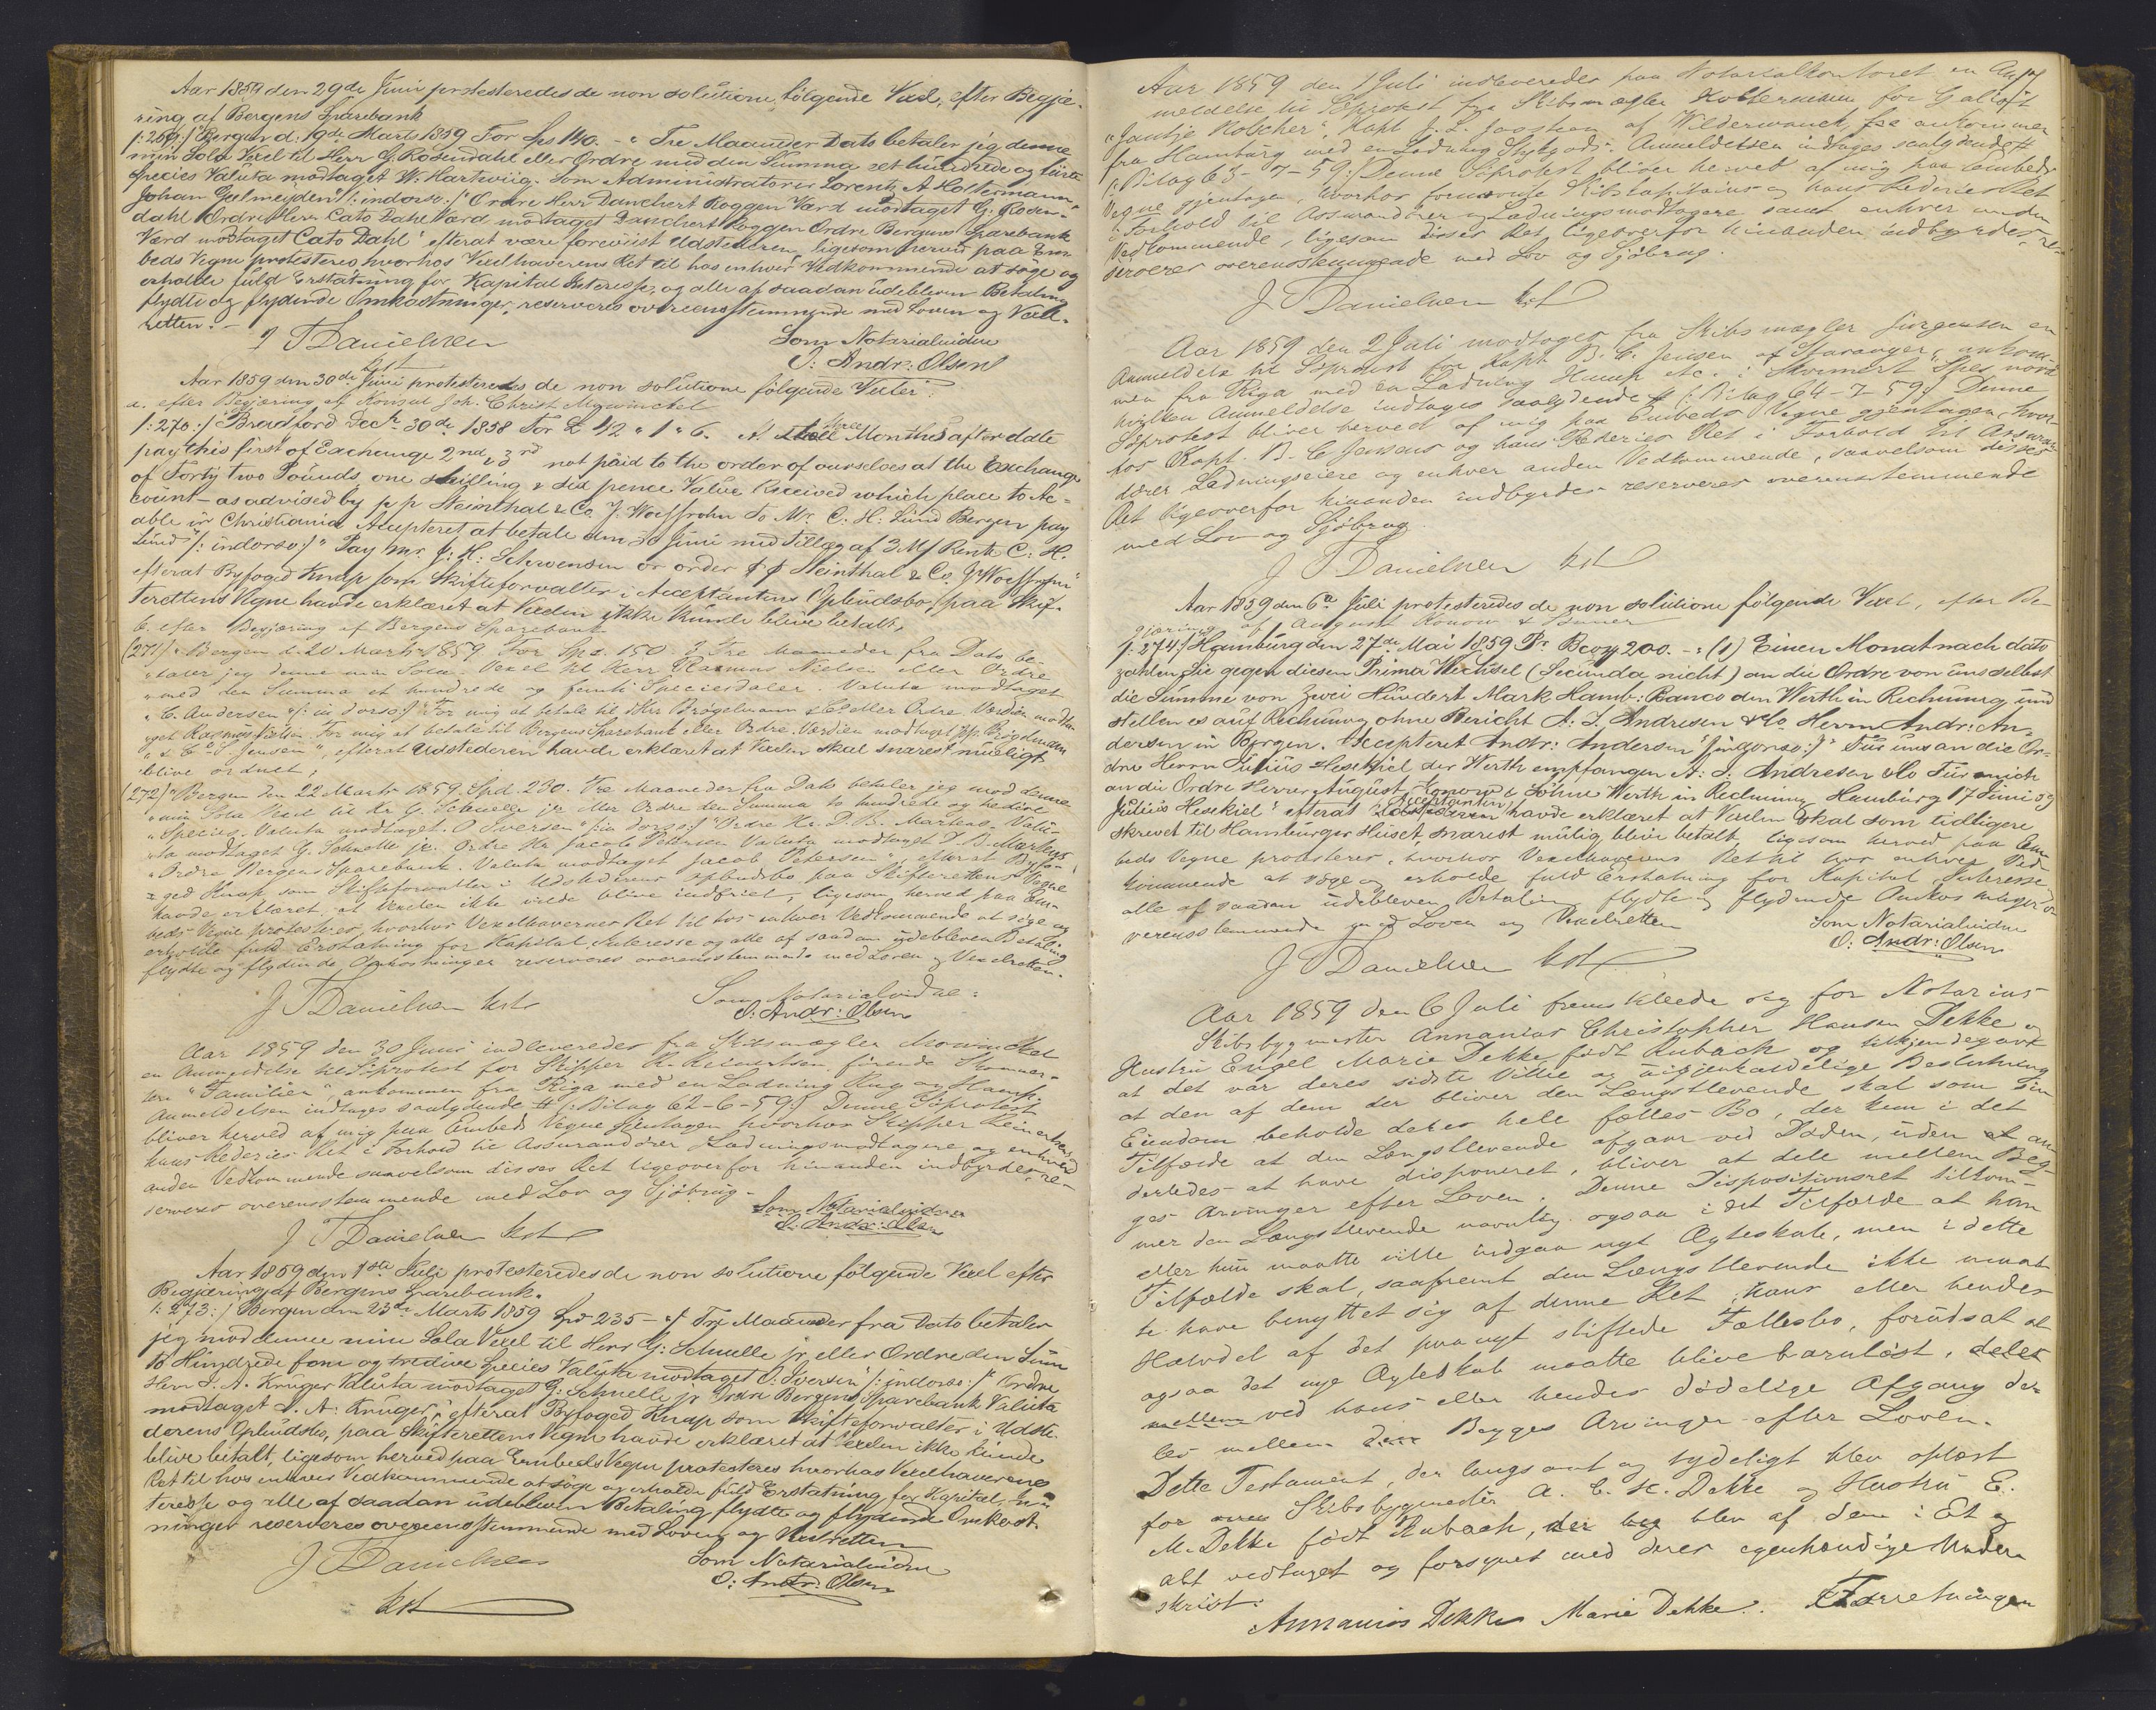 Aar 1859 den 29de Juni protesteredes de non solutione, følgende Vexel, efter Begjæ-
ring af Bergens Sparebank
/:269:/ "Bergen d: 19de Marts 1859 For Sps 140. - " Tre Maaneder Dato betaler jeg denne
min Sola Vexel til Herr G. Rosendahl eller Ordre med den Summa eet hundrede og førti
Species Valuta modtaget W. Hartwiig. Som Administratorer Lorentz A Holtermann,
Johan Gjelmeyden" /:indorso:/ "Ordre Herr Danchert Roggen Værd modtaget G: Rosen-
dahl Ordre Herr Cato Dahl Værd modtaget Danchert Roggen Ordre Bergens Sparebank
Værd modtaget Cato Dahl" efterat være foreviist Udstederen, ligesom herved paa Em-
beds Vegne protesteres hvorhos Vexelhaverens Ret til hos enhver Vedkommende at søge og
erholde fuld Erstatning for Kapital Interesse, og alle af saadan udebleven Betaling
flydte og flydende Omkostninger, reserveres overeensstemmende med Loven og Vexel-
retten. -
J T Danielsen
kst
Som Notarialvidne
O: Andr: Olsen
Aar 1859 den 30de Juni protesteredes de non solutione følgende Vexler.
a. efter Begjæring af Konsul Joh. Christ Mowinckel
/:270:/ "Bradford Decbr 30de 1858 For £ 42 " 1 " 6. At three Months after date
pay this first of Exchange 2nd & 3rd not paid to the order of ourselves at the Exchange
of Forty two Pounds, one shilling & six pence Value Received which place to Ac-
count - as advised by p p Steinthal & Co. J. Woeffrohn To Mr. C. H. Lund Bergen pay
able in Christiania Accepteret at betale den 30 Juni med Tillæg af 3 M/ Rente C: H.
Lund" /:indorso:/ "Pay Mr J: H: Schwensen or order p p Steinthal & Co. J. Woeffrohn"
efterat Byfoged Knap som Skifteforvalter i Acceptantens Opbudsbo, paa Skif-
terettens Vegne havde erklæret at Vexlen ikke kunde blive betalt,
b. efter Begjæring af Bergens Sparebank
(271) "Bergen d. 20 Marts 1859 For Spz. 150. Tre Maaneder fra Dato be-
"taler jeg denne min Sola Vexel til Herr Rasmus Nielsen eller Ordre
"med den Summa et hundrede og femti Speciesdaler. Valuta modtaget
"C. Andersen" /: in dorso:/ "For mig at betale til Hrr Brøgelmann & Co eller Ordre Værdien modta-
get Rasmus Nielsen. For mig at betale til Bergens Sparebank eller Ordre. Værdien modtaget pp. Brøgelmann
"& Co S Jensen", efterat Udstederen havde erklæret at Vexlen skal snarest mueligt
blive ordnet,
(272) "Bergen den 22 Marts 1859. Spd. 230. Tre Maaneder fra Dato betaler jeg mod denne
"min Sola Vexel til Hr. G. Schnelle jr. eller Ordre den Summa to hundrede og tredive
"Species. Valuta modtaget. O Iversen" /:in dorso:/ "Ordre Hr. D. B. Martens Valu-
"ta modtaget G. Schnelle jr. Ordre Hr Jacob Petersen Valuta modtaget D. B. Martens
"Ordre Bergens Sparebank. Valuta modtaget Jacob Petersen", efterat Byfo-
ged Knap som Skifteforvalter i Udstederens Opbudsbo paa Skifterettens Vegne
havde erklæret, at Vexelen ikke vilde blive indfriet, ligesom herved paa Em-
beds Vegne protesteres, hvorhos Vexelhavernes Ret til hos enhver Vedkommende at søge og
erholde fuld Erstatning for Kapital, Interesse og alle af saadan udebleven Betaling
flydte og flydende Omkostninger reserveres overensstemmende med Loven og Vexelretten.
J T Danielsen kst
Som Notarialvidne:
O: Andr: Olsen
Aar 1859 den 30 Juni indleveredes fra Skibsmægler Mowinckel
en Anmeldelse til Søprotest for Skipper R. Reinertsen, førende Skonner-
ten "Familien", ankommen fra Riga med en Ladning Rug og Hamp.
Anmeldelsen indtages saalydende # /:Bilag 62-6-59:/ Denne Søprotest
bliver herved af mig paa Embeds Vegne gjentagen hvorhos Skipper Reinertsens og
hans Rederies Ret i Forhold til Assurandører Ladningsmodtagere og enhver
anden Vedkommende saavelsom disses Ret ligeoverfor hinanden indbyrdes re-
serveres overensstemmende med Lov og Sjøbrug.
J T Danielsen kst
Som Notarialvidne
O: Andr: Olsen
Aar 1859 den 1ste Juli protesteredes de non solutione følgende Vexel efter
Begjæring af Bergens Sparebank.
/:273:/ "Bergen den 23de Marts 1859 Spd 235 - " Tre Maaneder fra Dato betaler
jeg mod denne min Sola Vexel til Herr G: Schnelle jr. eller Ordre den Sum
to Hundrede fem og tredive Species Valuta modtaget O: Iversen" /:indorso:/ "Ordre
Herr J. A. Krüger Valuta modtaget G: Schnelle jr Ordre Bergens Sparebank Valuta
modtaget J. A: Krüger," efterat Byfoged Knap som Skifteforvalter i Udste-
derens Opbudsbo, paa Skifterettens Vegne havde erklæret at Vexlen ikke kunde
blive betalt, ligesom herved paa Embeds Vegne protesteres hvorhos Vexelhaverens
Ret til hos enhver Vedkommende at søge og erholde fuld Erstatning for Kapital, In-
teresse og alle af saadan udebleven Betaling flydte og flydende Omkost-
ninger reserveres overeensstemmende med Loven og Vexelretten
J T Danielsen
kst
Som Notarialvidne
O: Andr: Olsen
Aar 1859 den 1 Juli indleveredes paa Notarialkontoret en An-
meldelse til Søprotest fra Skibsmægler Holtermann for Galioft
"Jantje Hölscher", Kapt J. L. Joosten af Wilderwanck, ankommen
fra Hamburg med en Ladning Stykgods. Anmeldelsen indtages saalydende #
/:Bilag 63-7-59:/ Denne Søprotest bliver herved af mig paa Embeds
Vegne gjentagen, hvorhos fornævnte Skibskapitains og hans Rederies Ret
i Forhold til Assurandører og Ladningsmodtagere samt enhver anden
Vedkommende, ligesom disses Ret ligeoverfor hinanden indbyrdes, re-
serveres overensstemmende med Lov og Sjøbrug.
J T Danielsen kst
Aar 1859 den 2 Juli modtoges fra Skibsmægler Jürgensen en
Anmeldelse til Søprotest for Kapt. B. C. Jensen af Stavanger, ankom-
men fra Riga med en Ladning Hamp etc. i Skonnert "Spes nova"
hvilken Anmeldelse indtages saalydende # /:Bilag 64-7-59:/ Denne
Søprotest bliver herved af mig paa Embeds Vegne gjentagen, hvor-
hos Kapt. B. C Jensens og hans Rederies Ret i Forhold til Assuran-
dører Ladningseiere og enhver anden Vedkommende, saavelsom disses
Ret ligeoverfor hinanden indbyrdes reserveres overensstemmende
med Lov og Sjøbrug.
J T Danielsen kst
Aar 1859 den 6te Juli protesteredes de non solutione følgende Vexel, efter Be-
gjæring af August Konow & Sønner
/:274:/ "Hamburg den 27de Mai 1859 Pr Bco𝓂 200. - : (1) Einen Monat nach dato
zahlen Sie gegen diesen Prima Wechsel (Secunda nicht) an die Ordre von uns selbst
die Summe von Zwei Hundert Mark Hamb: Banco den Werth in Rechnung und
stellen es auf Rechnung ohne Bericht A. J. Andresen & Co Herrn Andr: An-
dersen in Bergen. Accepteret Andr: Andersen" /:indorso:/ "Für uns an die Or-
dre Herrn Julius Hesekiel der Werth empfangen A: J: Andresen & Co Für mich
an die Ordre Herren August Konow & Söhne Werth in Rechnung Hamburg 17 Juni 59
Julius Hesekiel" efterat Acceptanten havde erklæret at Vexlen skal som tidligere
skrevet til Hamburger Huset, snarest mulig blive betalt, ligesom herved paa Em-
beds Vegne protesteres, hvorhos Vexelhaverens Ret til hos enhver Ved-
kommende at søge og erholde fuld Erstatning for Kapital, Interesse,
alle af saadan udebleven Betaling flydte og flydende Omkostninger o-
verensstemmende med Loven og Vexelretten
J T Danielsen kst
Som Notarialvidne
O: Andr: Olsen
Aar 1859 den 6 Juli fremstillede sig for Notarius
Skibsbygmester Annanias Christopher Hansen Dekke og
Hustru Engel Marie Dekke født Rubach og tilkjendegave
at det var deres sidste Villie og uigjenkaldelige Beslutning
at den af dem der bliver den Længstlevende skal som sin
Eiendom beholde deres hele fælles Bo, der kun i det
Tilfælde at den Længstlevende afgaar ved Døden, uden an-
derledes at have disponeret, bliver at dele mellem Beg-
ges Arvinger efter Loven. Denne Dispositionsret tilkom-
mer den Længstlevende navnlig ogsaa i det Tilfælde at han
eller hun maatte ville indgaa nyt Ægteskab, men i dette
Tilfælde skal, saafremt den Længstlevende ikke maat-
te have benyttet sig af denne Ret, hans eller hendes
Halvdel af det paa nyt stiftede Fællesbo, forudsat at
ogsaa det nye Ægteskab maatte blive barnløst, deles
mellem ved hans eller hendes dødelige Afgang de-
les mellem Begges Arvinger efter Loven.
Dette Testament, der langsomt og tydeligt blev oplæst
for Skibsbygmester A. C. H. Dekke og Hustru E.
M. Dekke født Rubach, blev af dem i Et og
alt vedtaget og forsynet med deres egenhændige Under-
skrift.
Annanias Dekke Marie Dekke. Forretningen